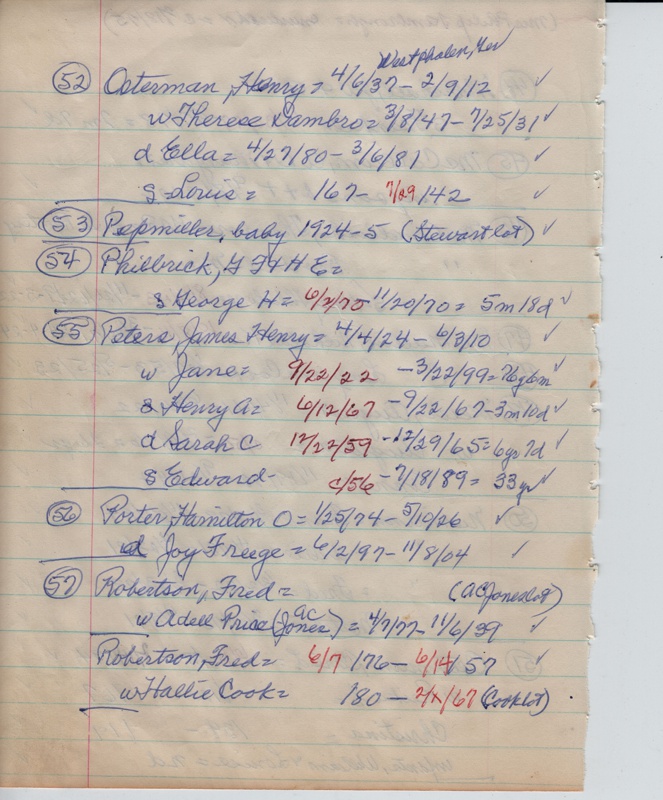 Westphalen, Ger
52 Osterman, Henry = 4/6/37 - 2/9/12 ✓
w Therese Dambro = 3/8/47 - 7/25/31 ✓
d Ella = 4/27/80 - 3/6/81 ✓
s Louis = 167 - 7/29/42 ✓
53 Pepmiller, baby 1924-5 (Stewart lot) ✓
54 Philbrick, H E =
s George H = 6/2/70 11/20/70 = 5m 18d ✓
55 Peters, James Henry = 4/4/24 - 6/3/10 ✓
w Jane = 9/22/22 - 3/22/99 = 76y 6m ✓
s Henry A = 6/12/67 - 9/22/67 - 3m 10d ✓
d Sarah C 12/22/59 - 12/29/65 = 6yr 7d ✓
s Edward - c/56 - 7/18/89 = 33 yr ✓
56 Porter, Hamilton O = 1/25/74 - 5/10/26 ✓
d Joy Freege = 6/2/97 - 11/8/04 ✓
57 Robertson, Fred = (AC Jones lot)
w Adell Price (AC Jones) = 4/7/77 - 11/6/39 ✓
Robertson, Fred = 6/7 176 - 6/14/57 ✓
w Hallie Cook = 180 - /67 (Cook lot)